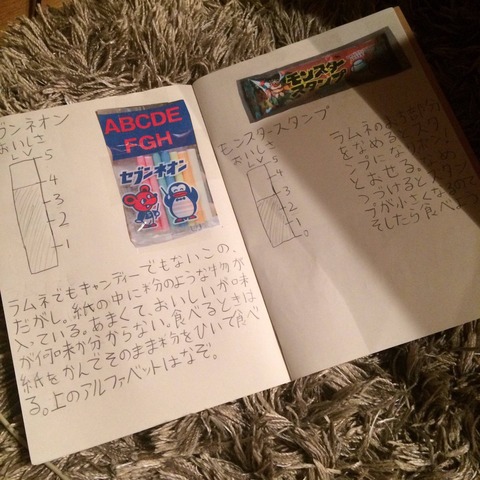 ブンネオン
おいしさ
Lv
5
4
3
2
1
ABCDE
FGH
セブンネオン
ラムネでもキャンディーでもないこの、
だがし。紙の中に粉のような物が
入っている。あまくて、おいしいが味
が何味か分からない。食べるときは
紙をかんでそのまま粉をひいて食べ
る。上のアルファベットはなぞ。
モンスター
スタンプ
モンスタースタンプ
おいしさ
Lv
5
4
3
2
1
0
ラムネの
をなめる
プにな
とおせる。
つづけると
プが小さくなるので
そしたら食べよう